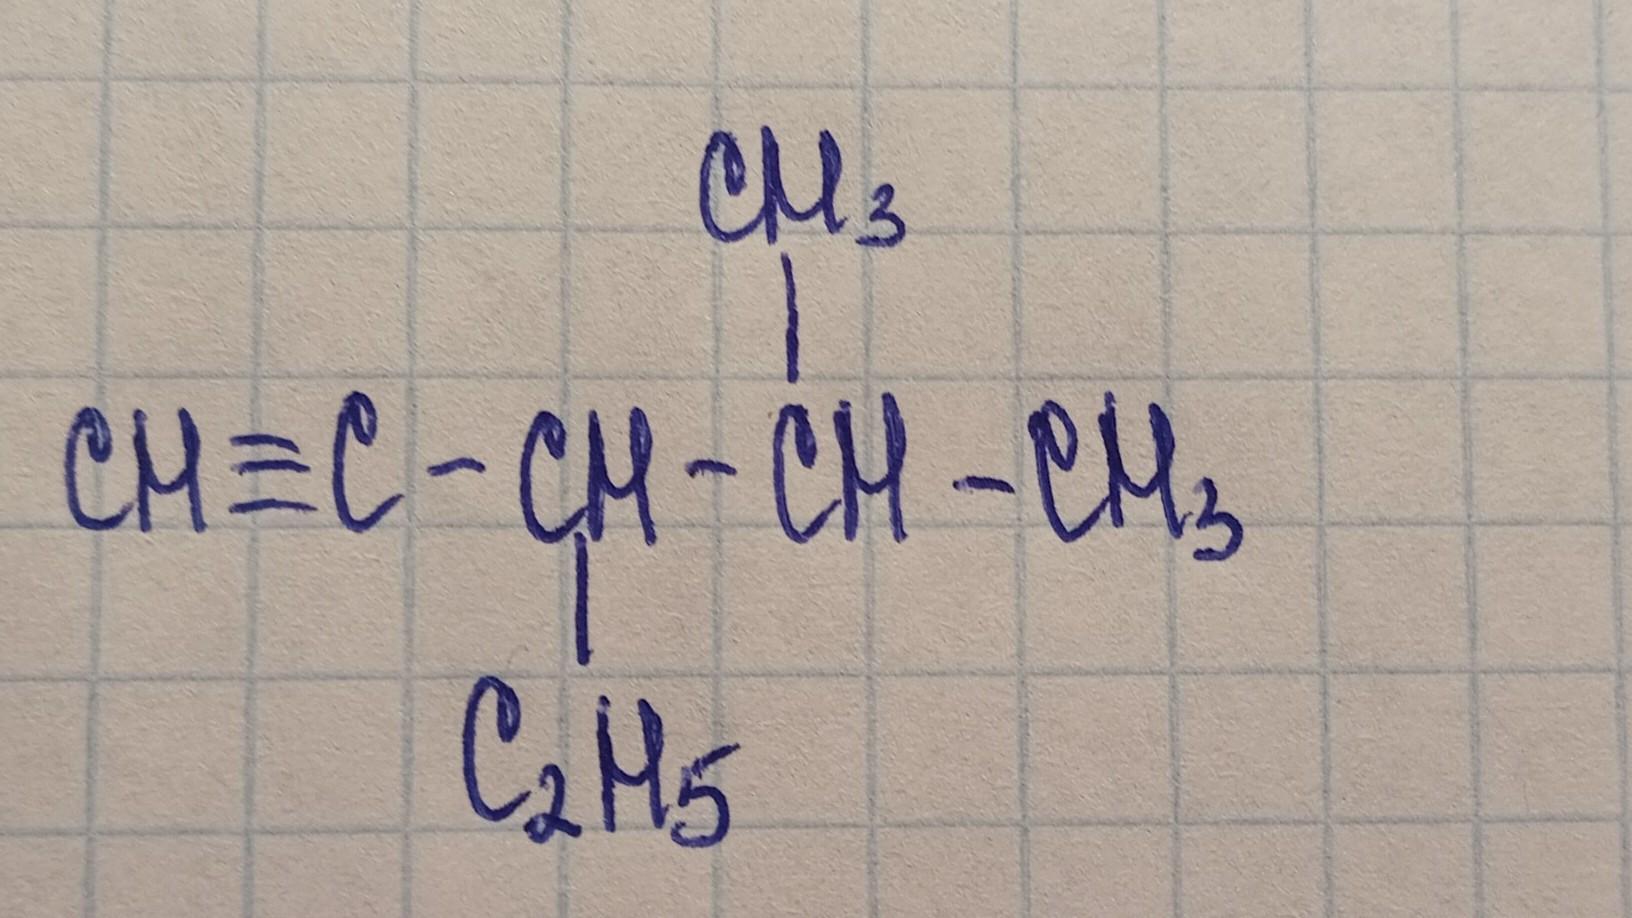 CH3
CH≡C-CH-CH-CH3
C2H5